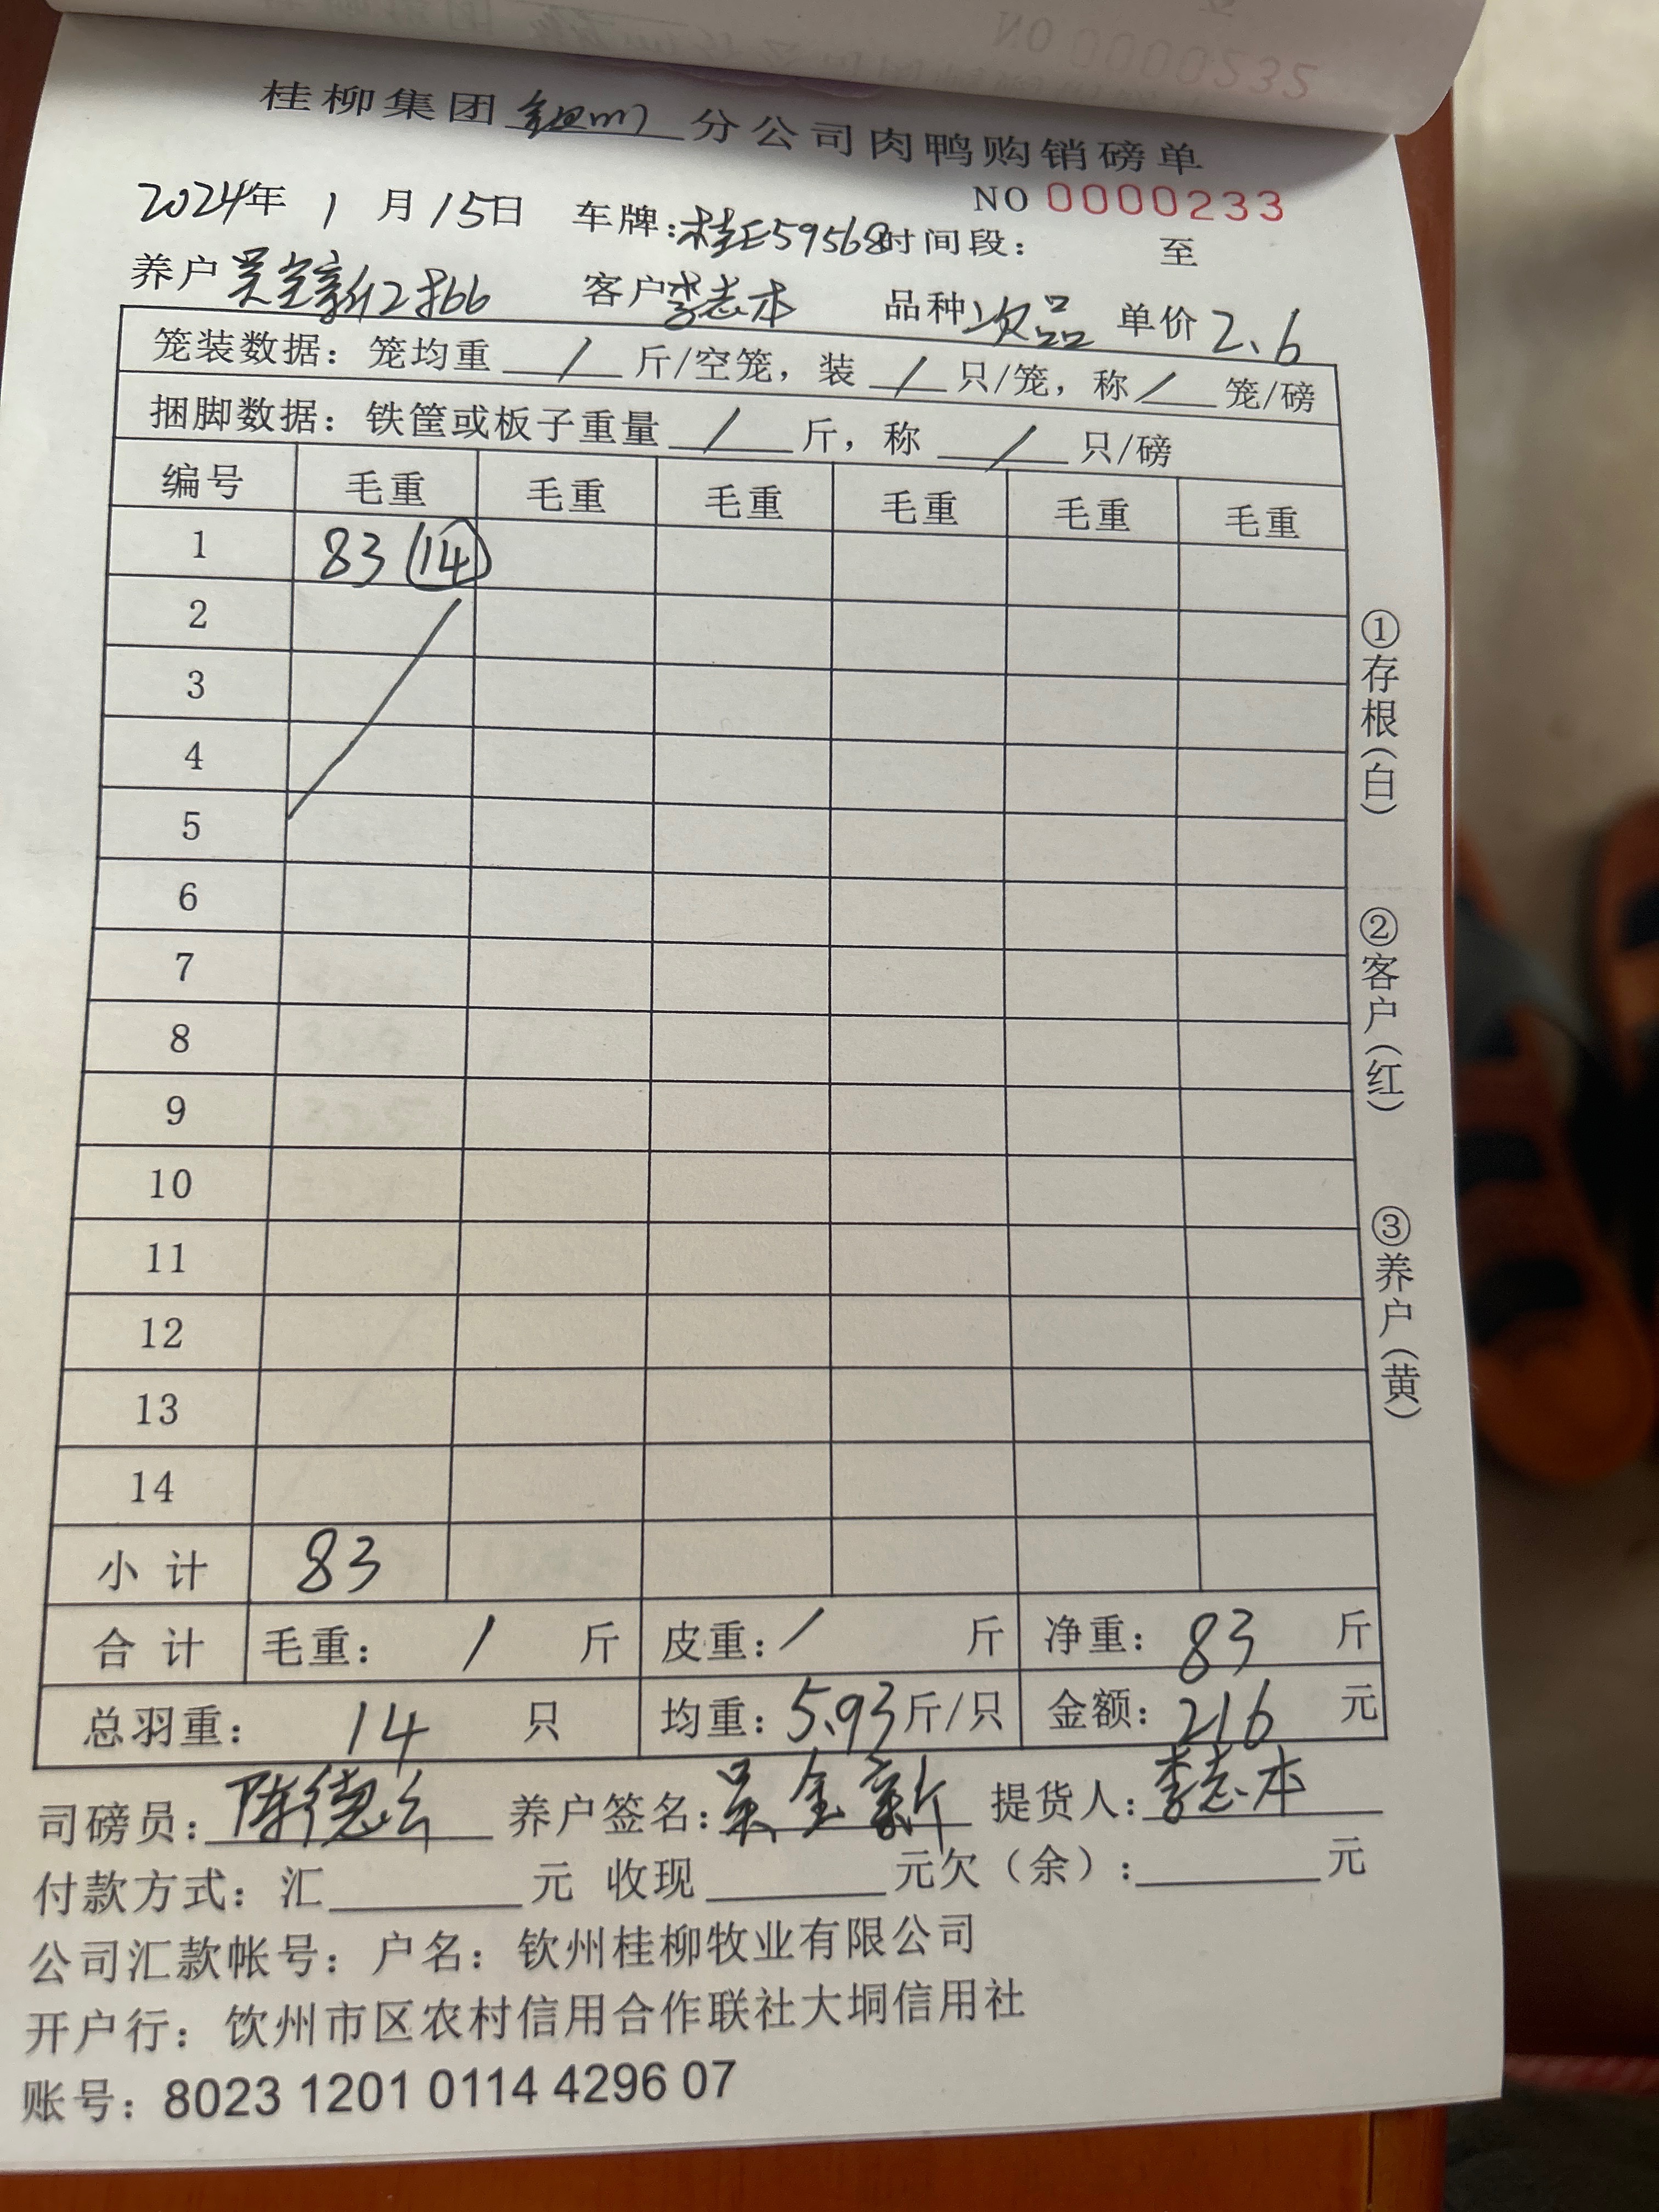 NO 0000232
桂柳集团钦州分公司肉鸭购销磅单
NO 0000233
2024年 1 月 15日 车牌:桂E59568 时间段: 至
养户 吴金新12批66 客户 李志本 品种 次品 单价 2.6
笼装数据: 笼均重 / 斤/空笼, 装 / 只/笼, 称 / 笼/磅
捆脚数据: 铁筐或板子重量 / 斤, 称 / 只/磅
编号 毛重 毛重 毛重 毛重 毛重 毛重
1 83 (14)
2
3
4
5
6
7
8
9
10
11
12
13
14
小计 83
合计 毛重: / 斤 皮重: / 斤 净重: 83 斤
总羽重: 14 只 均重: 5.93 斤/只 金额: 216 元
①存根(白)
②客户(红)
③养户(黄)
司磅员: 陈德云 养户签名: 吴金新 提货人: 李志本
付款方式: 汇 元 收现 元欠(余): 元
公司汇款帐号: 户名: 钦州桂柳牧业有限公司
开户行: 钦州市区农村信用合作联社大垌信用社
账号: 8023 1201 0114 4296 07